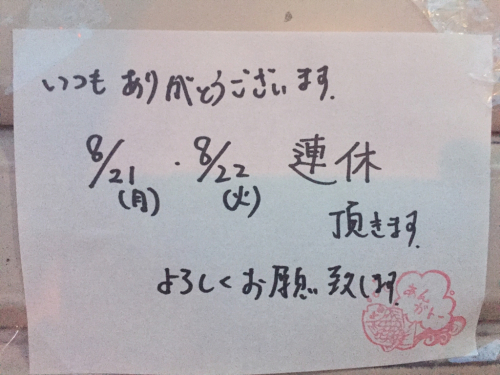 いつもありがとうございます.
8/21(月)・8/22(火) 連休
頂きます.
よろしくお願い致します.
あんがトー